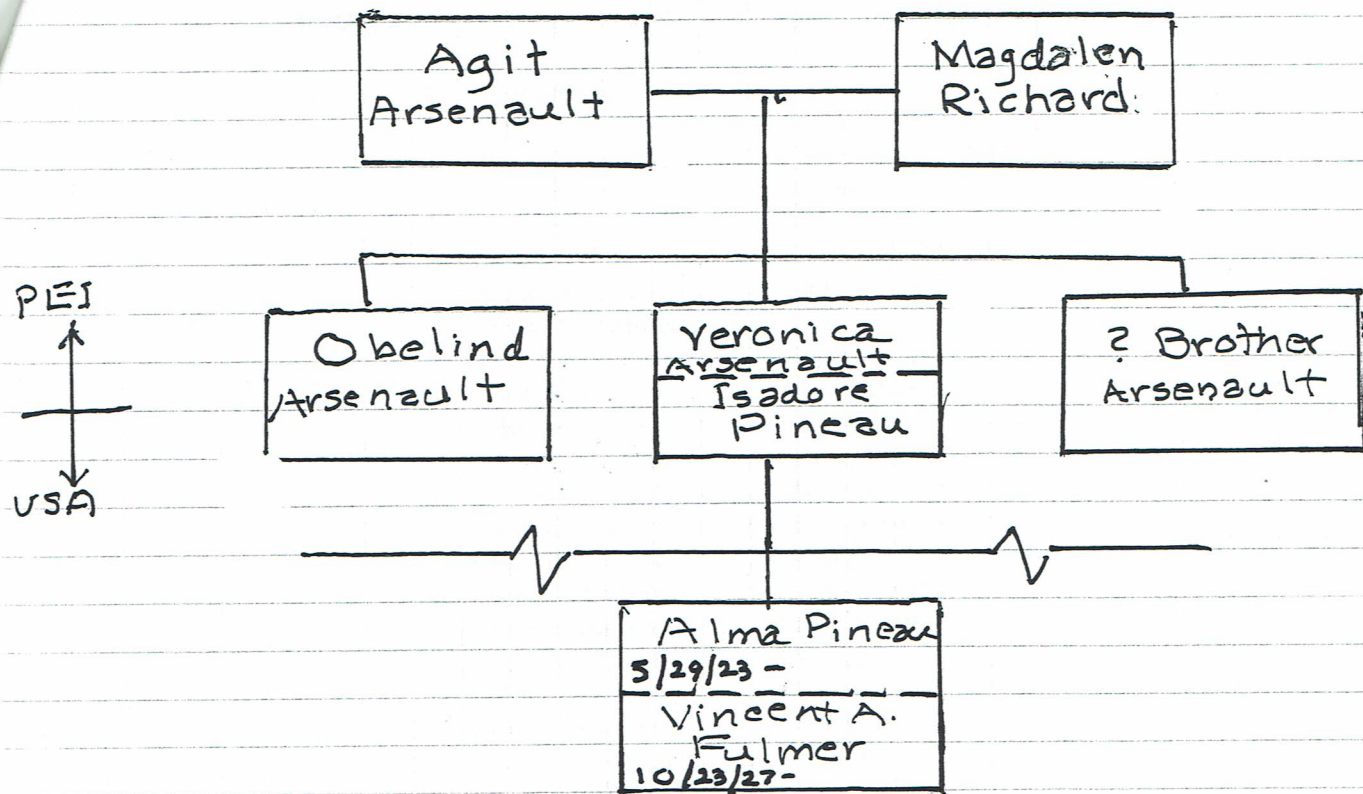 Agit
Arsenault
Magdalen
Richard.
PEI
USA
Obelind
Arsenault
Veronica
Arsenault
Isadore
Pineau
? Brother
Arsenault
Alma Pineau
5/29/23-
Vincent A.
Fulmer
10/23/27-